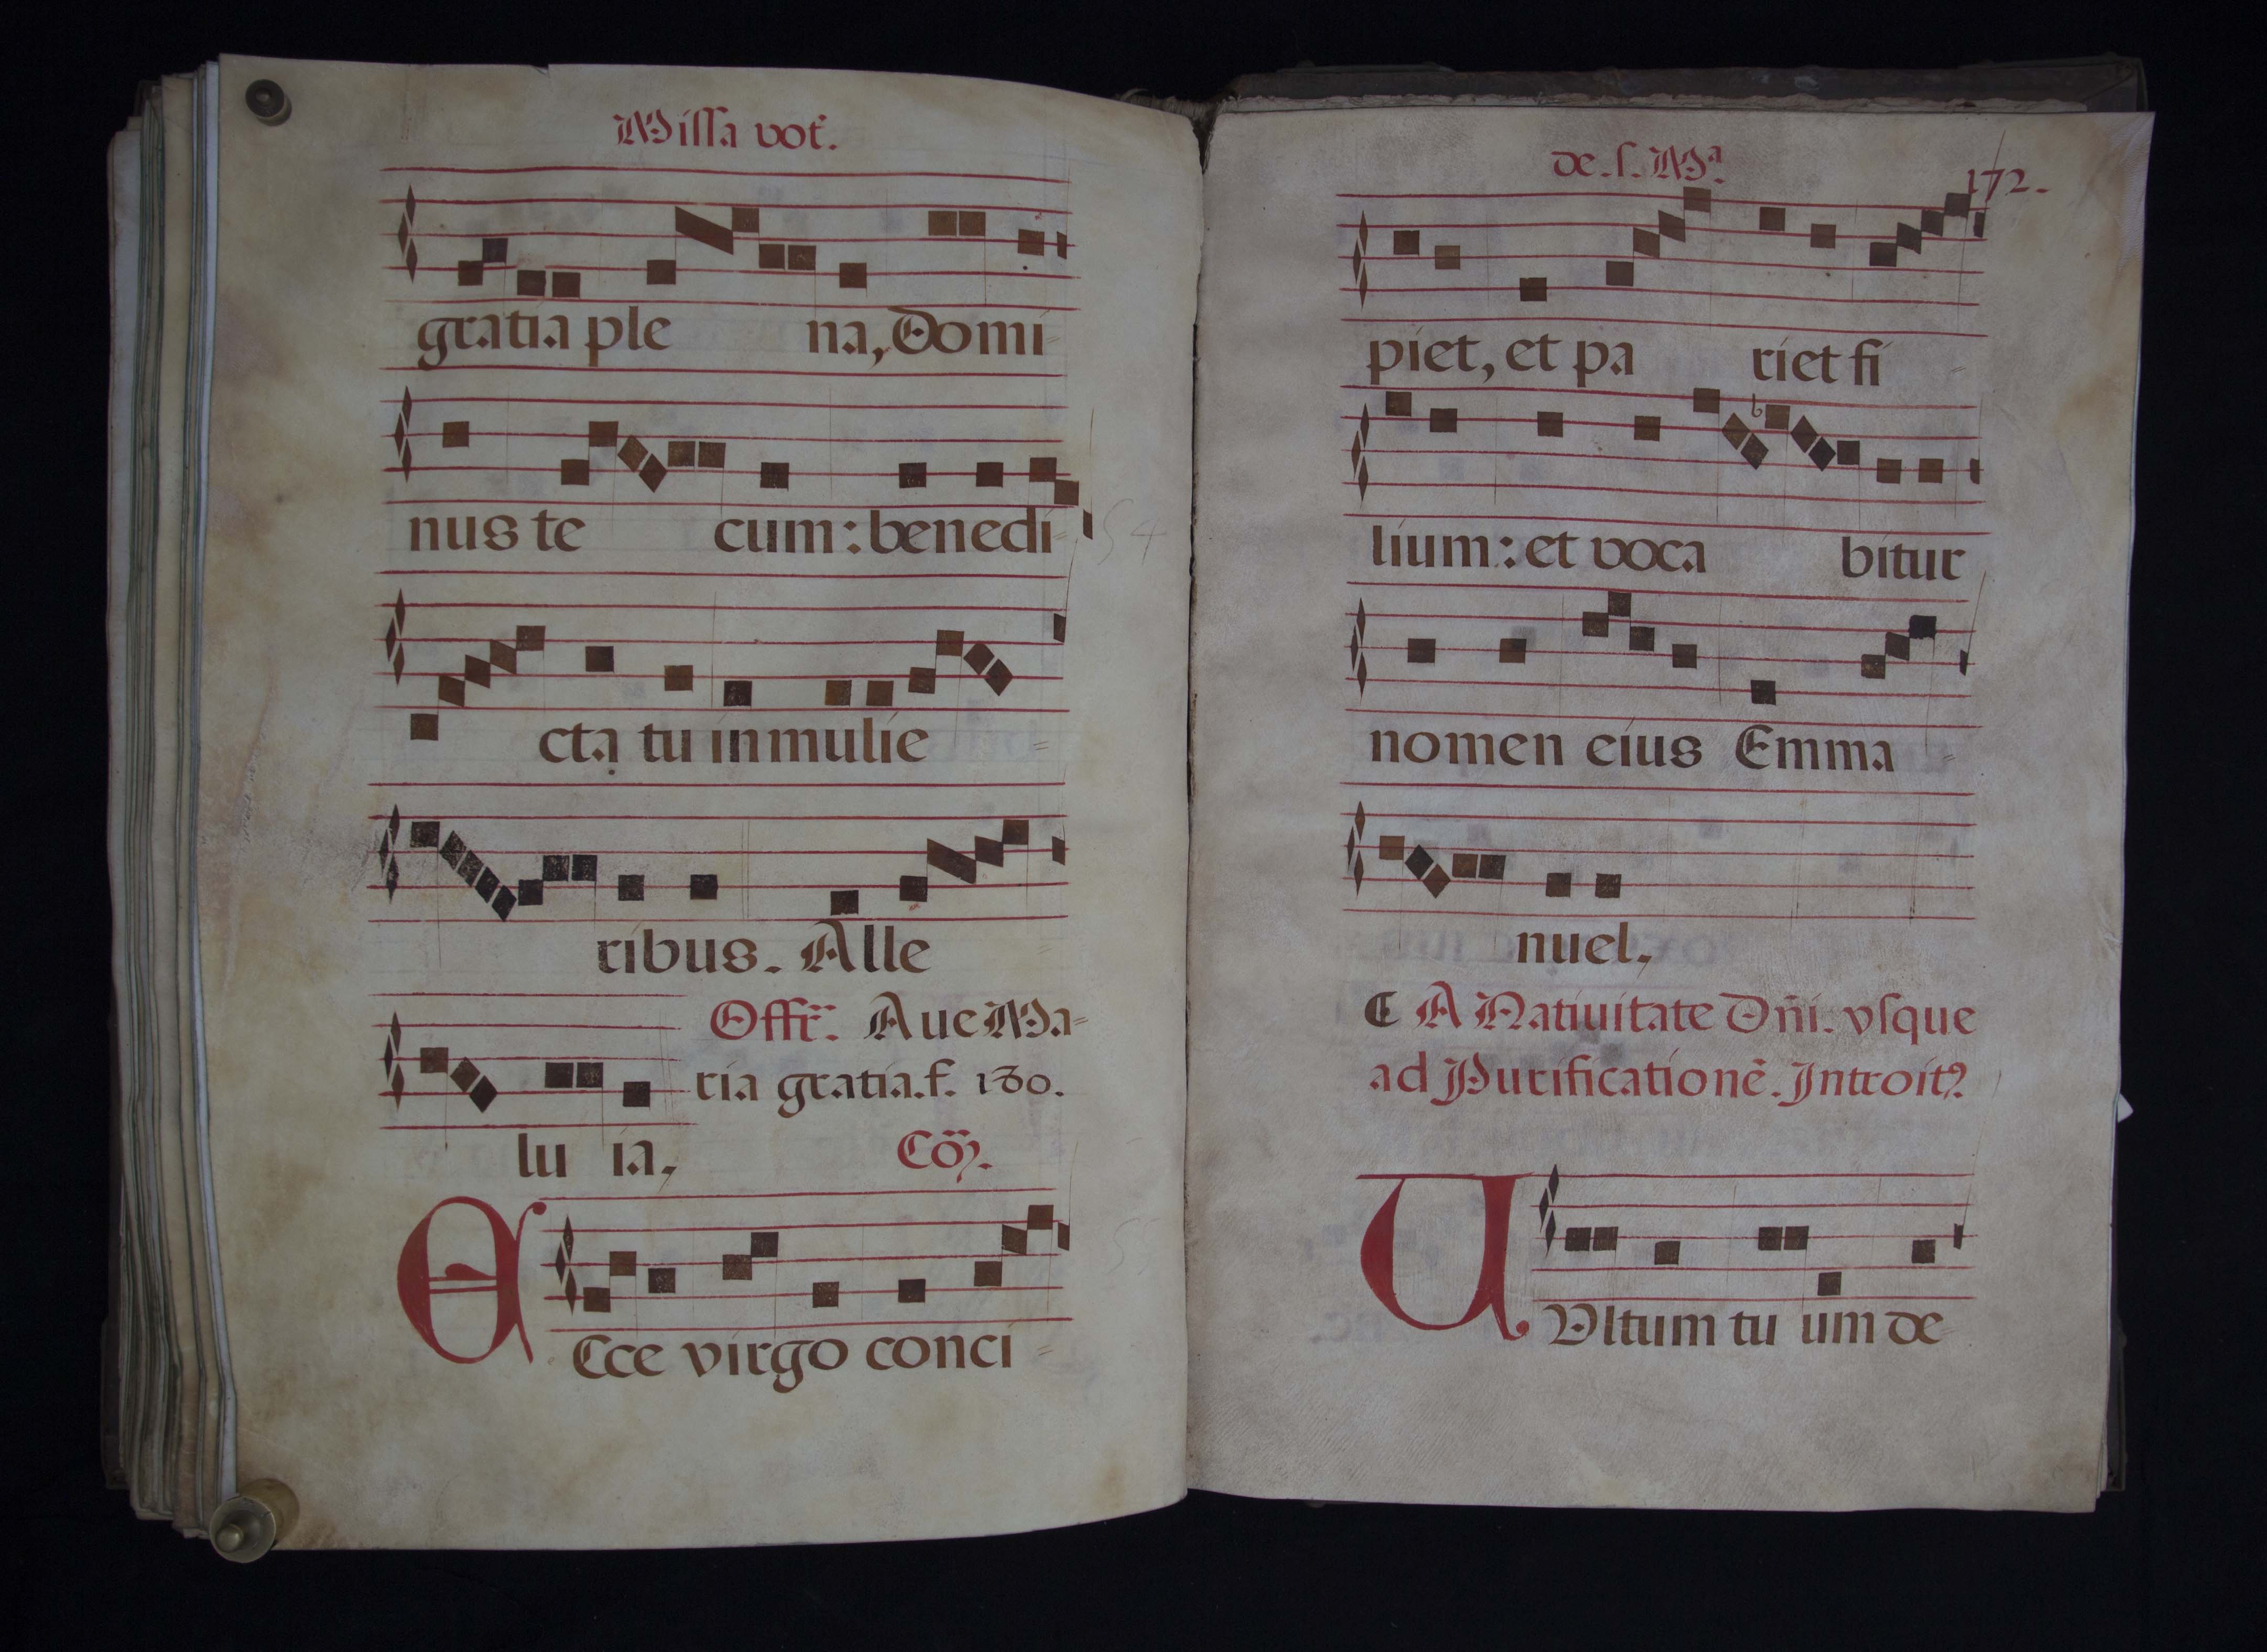 Missa vot.
gratia ple na, Domi-
nus te cum: benedi-
cta tu in mulie-
ribus. Alle
Offr. Ave Ma-
ria gratia. f. 180.
lu ia,
Cō.
E
Ecce virgo conci-
de. s. Mª.
172.
piet, et pa riet fi-
lium: et voca bitur
nomen eius Emma-
nuel,
A Nativitate Dñi. vsque
ad Purificationē. Introit9
V
Vltum tu um de